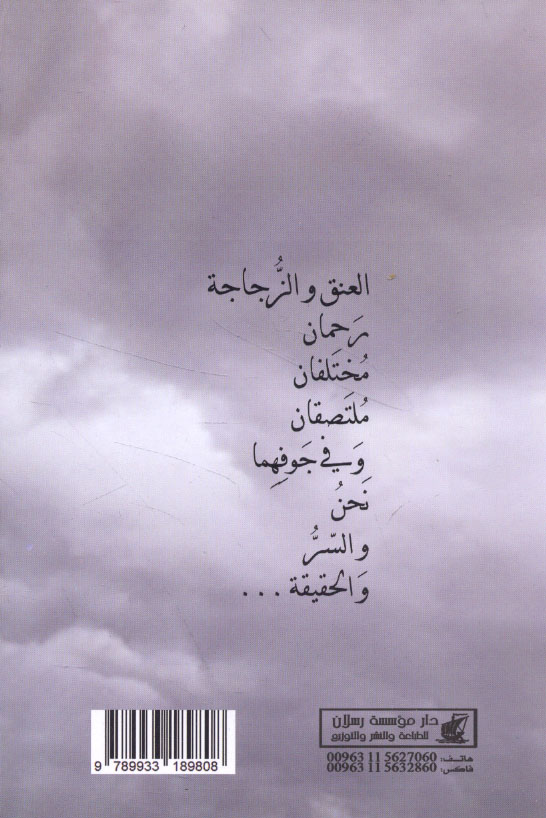 العنق والزُّجاجة
رَحمان
مُختَلفان
مُلتَصقان
وَفي جَوفِهِما
نَحنُ
والسّرُّ
وَالحقيقة . . .
دار مؤسسة رسلان
للطباعة والنشر والتوزيع
هاتف: 00963 11 5627060
فاكس: 00963 11 5632860
9 789933 189808